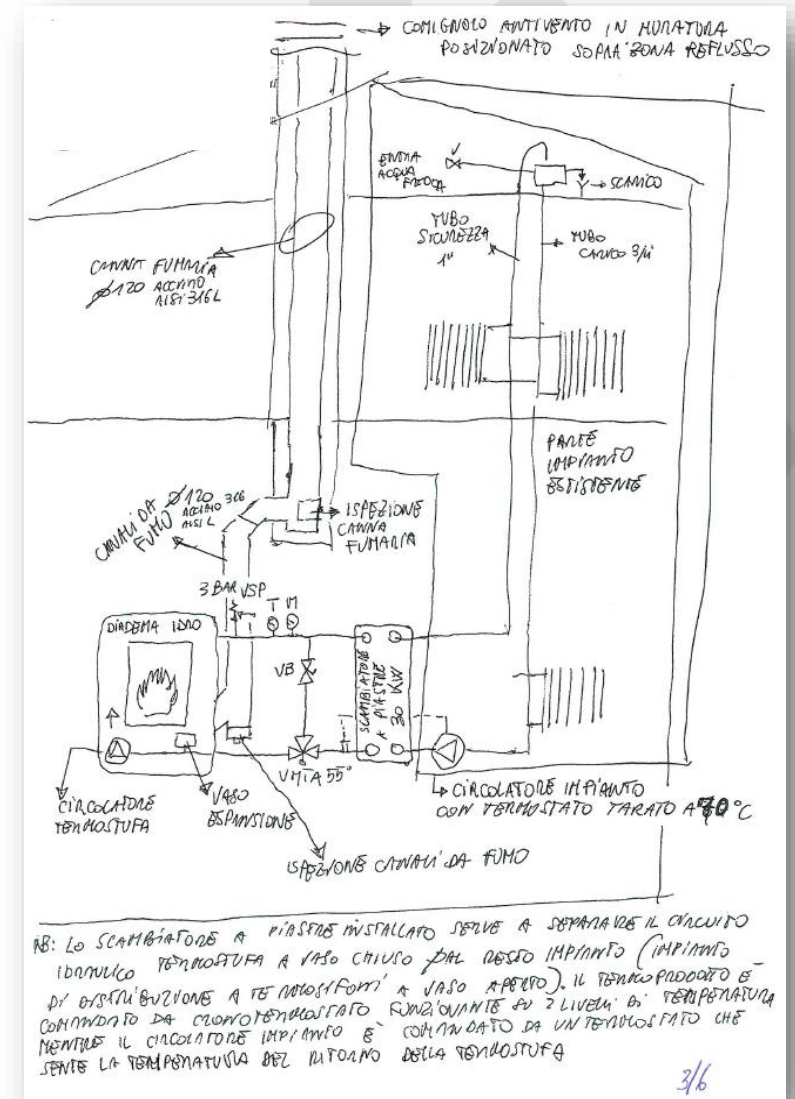 COMIGNOLO ANTIVENTO IN MURATURA
POSIZIONATO SOPRA ZONA REFLUSSO
ENTRATA
ACQUA
FREDDA
SCARICO
TUBO
SICUREZZA
1"
TUBO
CARICO 3/4
CANNA FUMARIA
Ø120 ACCIAIO
AISI 316L
PARTE
IMPIANTO
ESISTENTE
CANALI DA
FUMO
Ø120
ACCIAIO 316
AISI L
ISPEZIONE
CANNA
FUMARIA
3 BAR VSP
T M
DIADEMA IDRO
VB
SCAMBIATORE
A PIASTRE
30 KW
VMTA 55°
CIRCOLATORE
TERMOSTUFA
VASO
ESPANSIONE
CIRCOLATORE IMPIANTO
CON TERMOSTATO TARATO A 70°C
ISPEZIONE CANALI DA FUMO
NB: LO SCAMBIATORE A PIASTRE INSTALLATO SERVE A SEPARARE IL CIRCUITO
IDRAULICO TERMOSTUFA A VASO CHIUSO DAL RESTO IMPIANTO (IMPIANTO
DI DISTRIBUZIONE A TERMOSIFONI A VASO APERTO). IL TERMOPRODOTTO È
COMANDATO DA CRONOTERMOSTATO FUNZIONANTE SU 2 LIVELLI DI TEMPERATURA
MENTRE IL CIRCOLATORE IMPIANTO È COMANDATO DA UN TERMOSTATO CHE
SENTE LA TEMPERATURA DEL RITORNO DELLA TERMOSTUFA
3/6